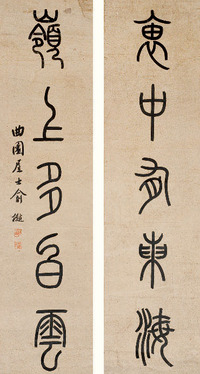 裏中有東海
嶺上多白雲
曲園居士俞樾